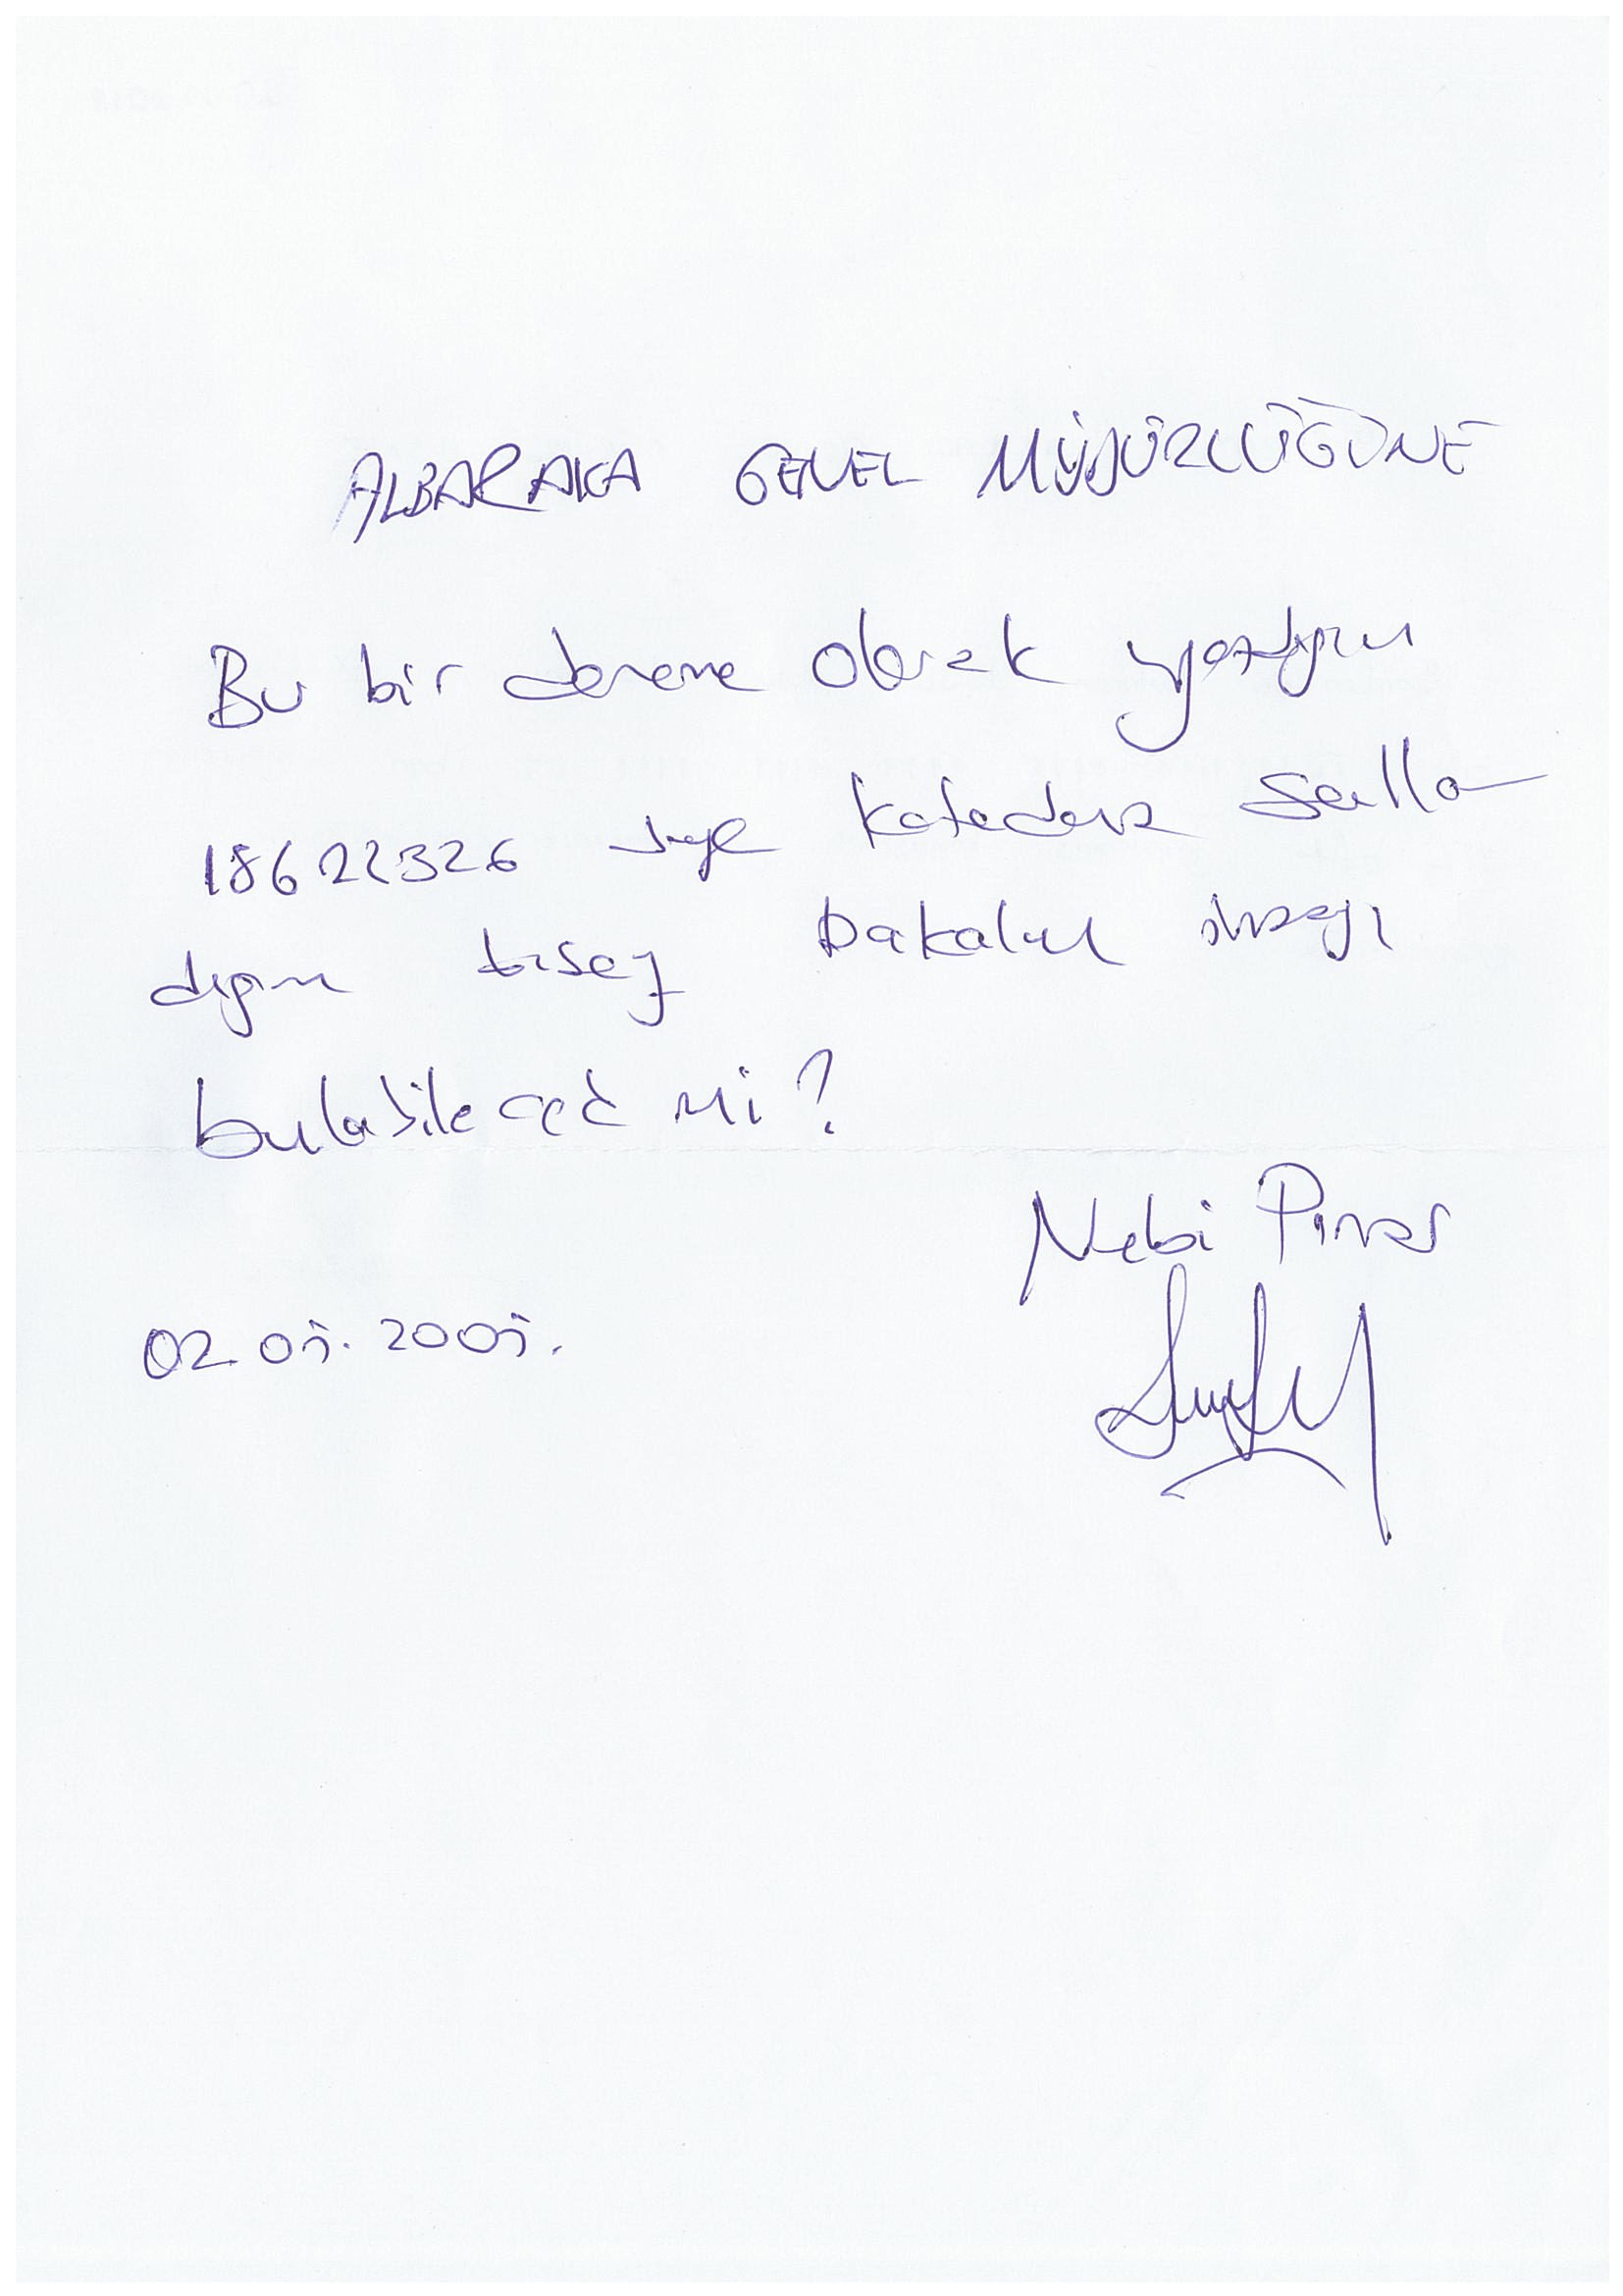 ALBARAKA GENEL MÜDÜRLÜĞÜNE
Bu bir deneme olarak yazdığım
18622326 diye kafadan salla
dığım birşey bakalım imzayı
bulabilecek mi?
Nebi Pınar
02.05.2005.